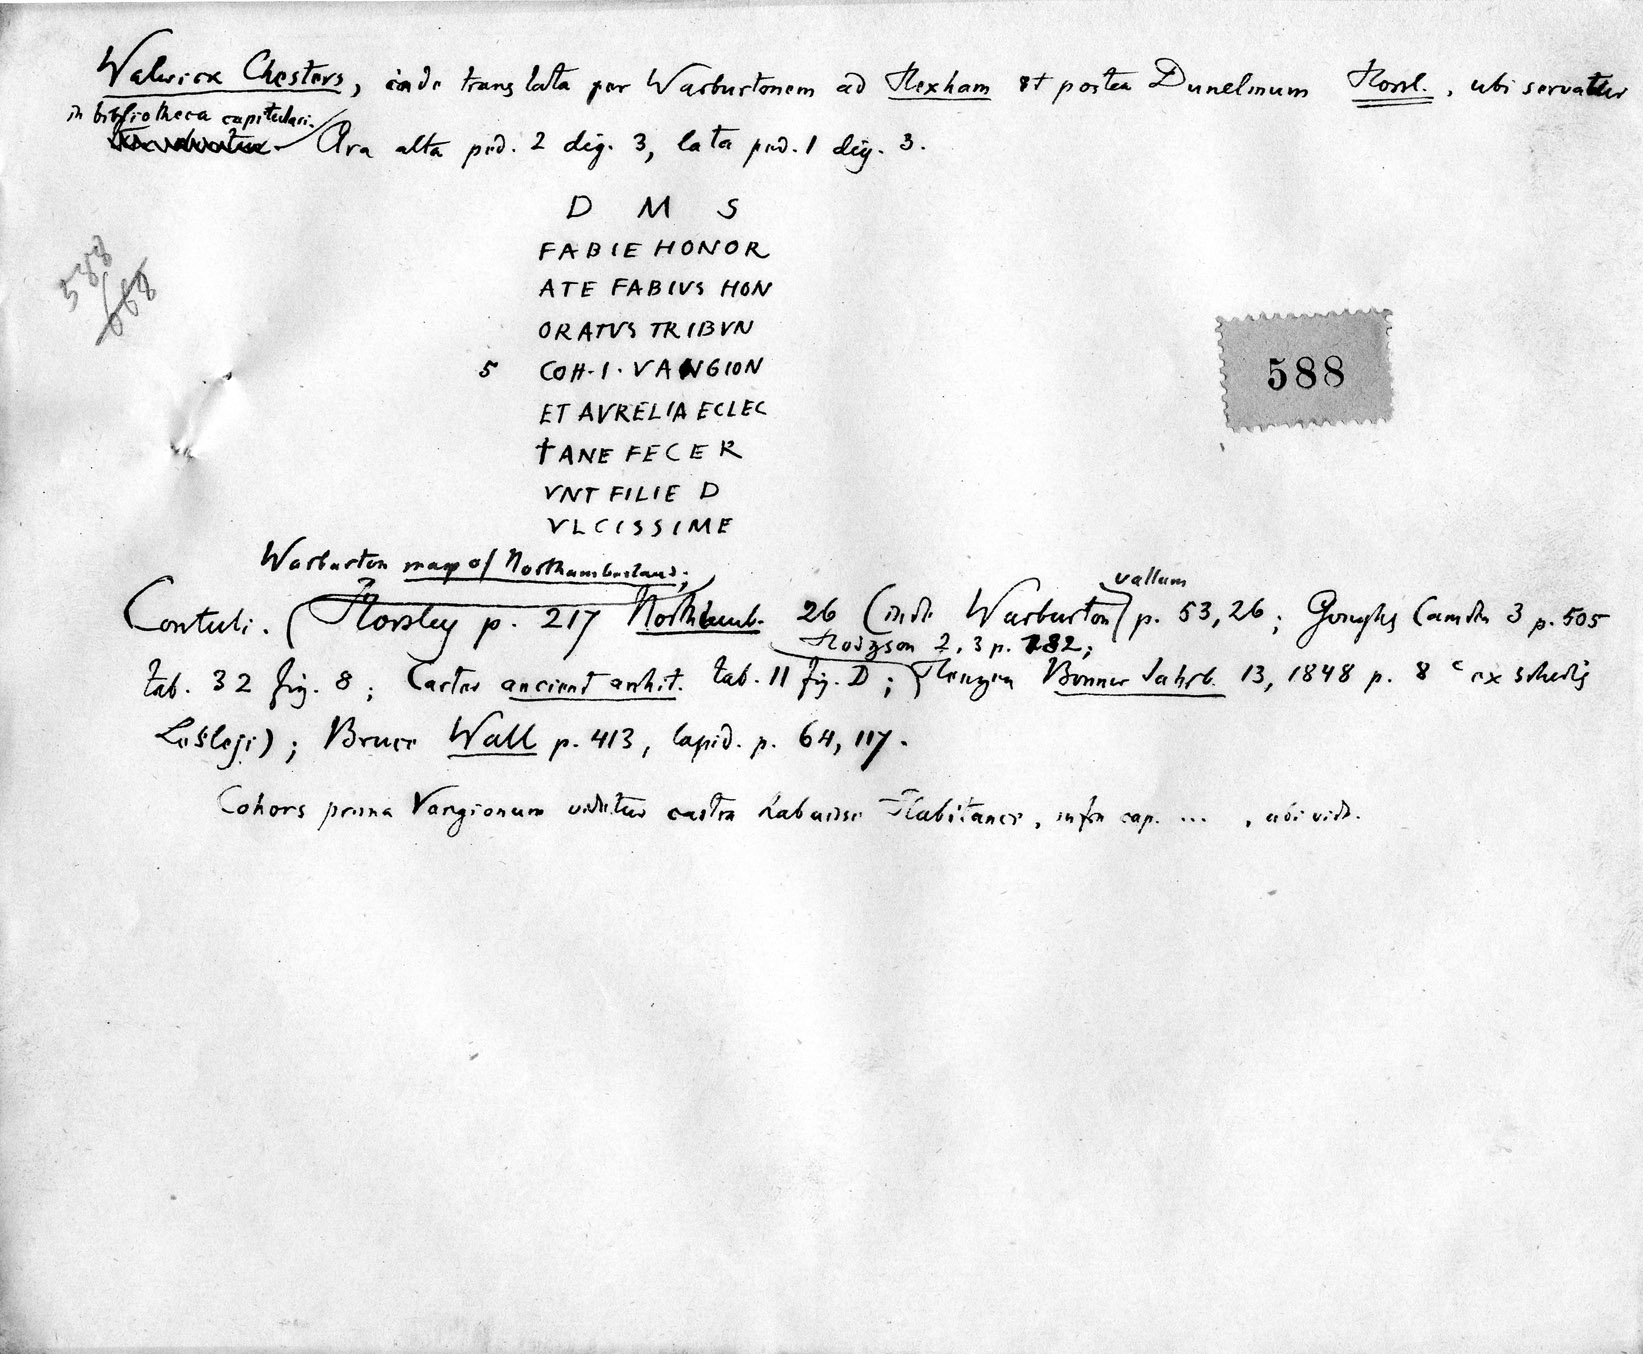 Walwick Chesters, inde translata per Warburtonem ad Hexham et postea Dunelmum Horsl., ubi servatur
in bibliotheca capitulari.
Ara alta ped. 2 dig. 3, lata ped. 1 dig. 3.
D M S
FABIE HONOR
ATE FABIVS HON
ORATVS TRIBVN
588
668
5 COH · I · VANGION
588
ET AVRELIA ECLEC
TANE FECER
VNT FILIE D
VLCISSIME
Warburton map of Northumberland;
vallum
Contuli. (Horsley p. 217 Northumb. 26 (inde Warburton) p. 53, 26; Goughs Camden 3 p. 505
Hodgson 2, 3 p. 182;
tab. 32 fig. 8; Carter ancient archit. tab. 11 fig. D; Henzen Bonner Jahrb. 13, 1848 p. 8 c ex schedis
Lersleji); Bruce Wall p. 413, lapid. p. 64, 117.
Cohors prima Vangionum videtur castra habuisse Habitance, infra cap. ... , ubi vide.